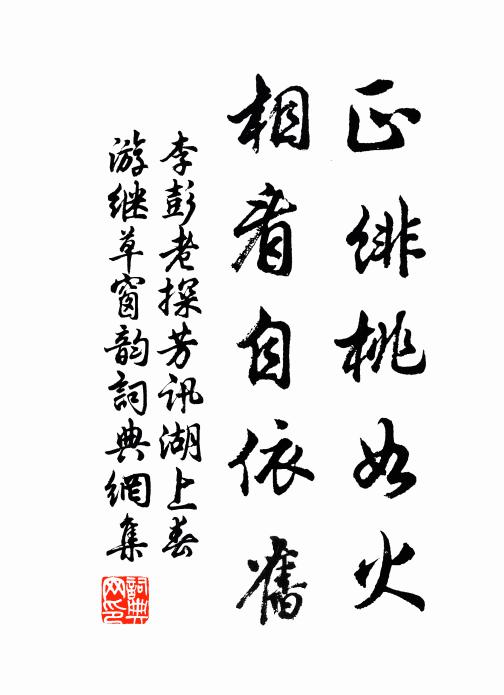 正绯桃如火
相看自依舊
李彭老探芳讯湖上春
游继草窗韵詞典網集
詞典网印